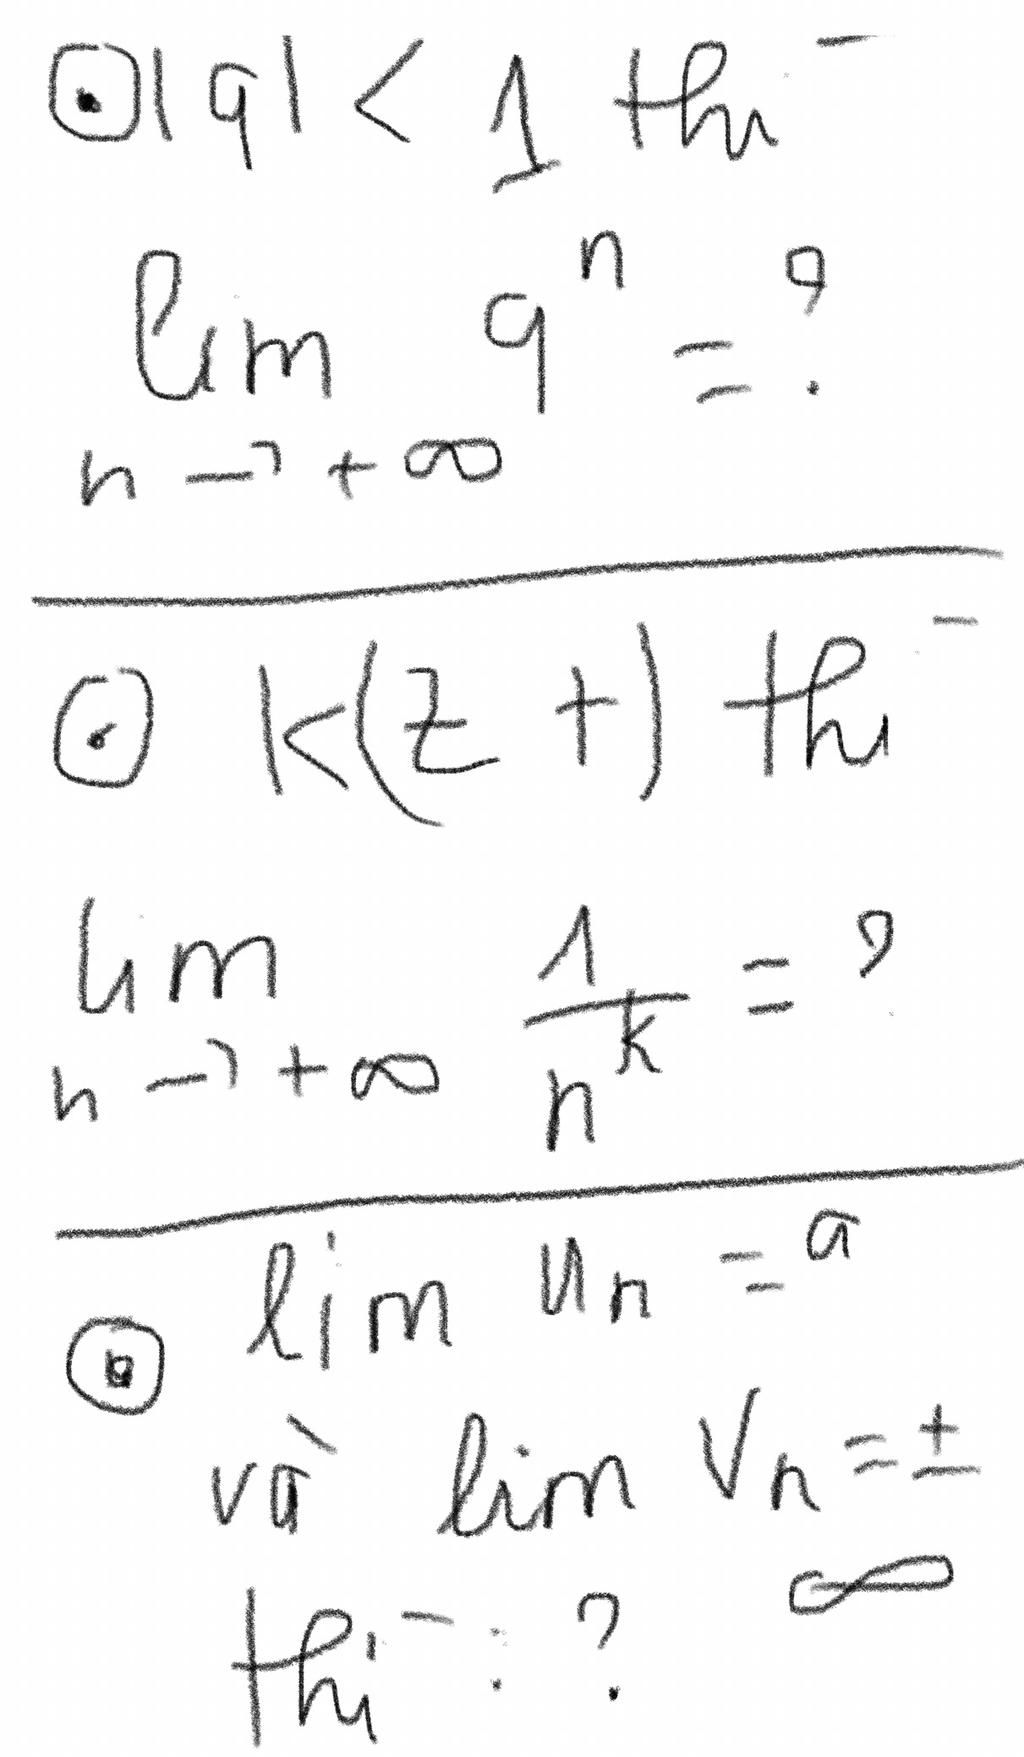 ⊙ |q| < 1 thì
lim qⁿ = ?
n → +∞
⊙ k(z +) thì
lim 1/nᵏ = ?
n → +∞
⊙ lim uₙ = a
và lim Vₙ = ±
∞
thì : ?